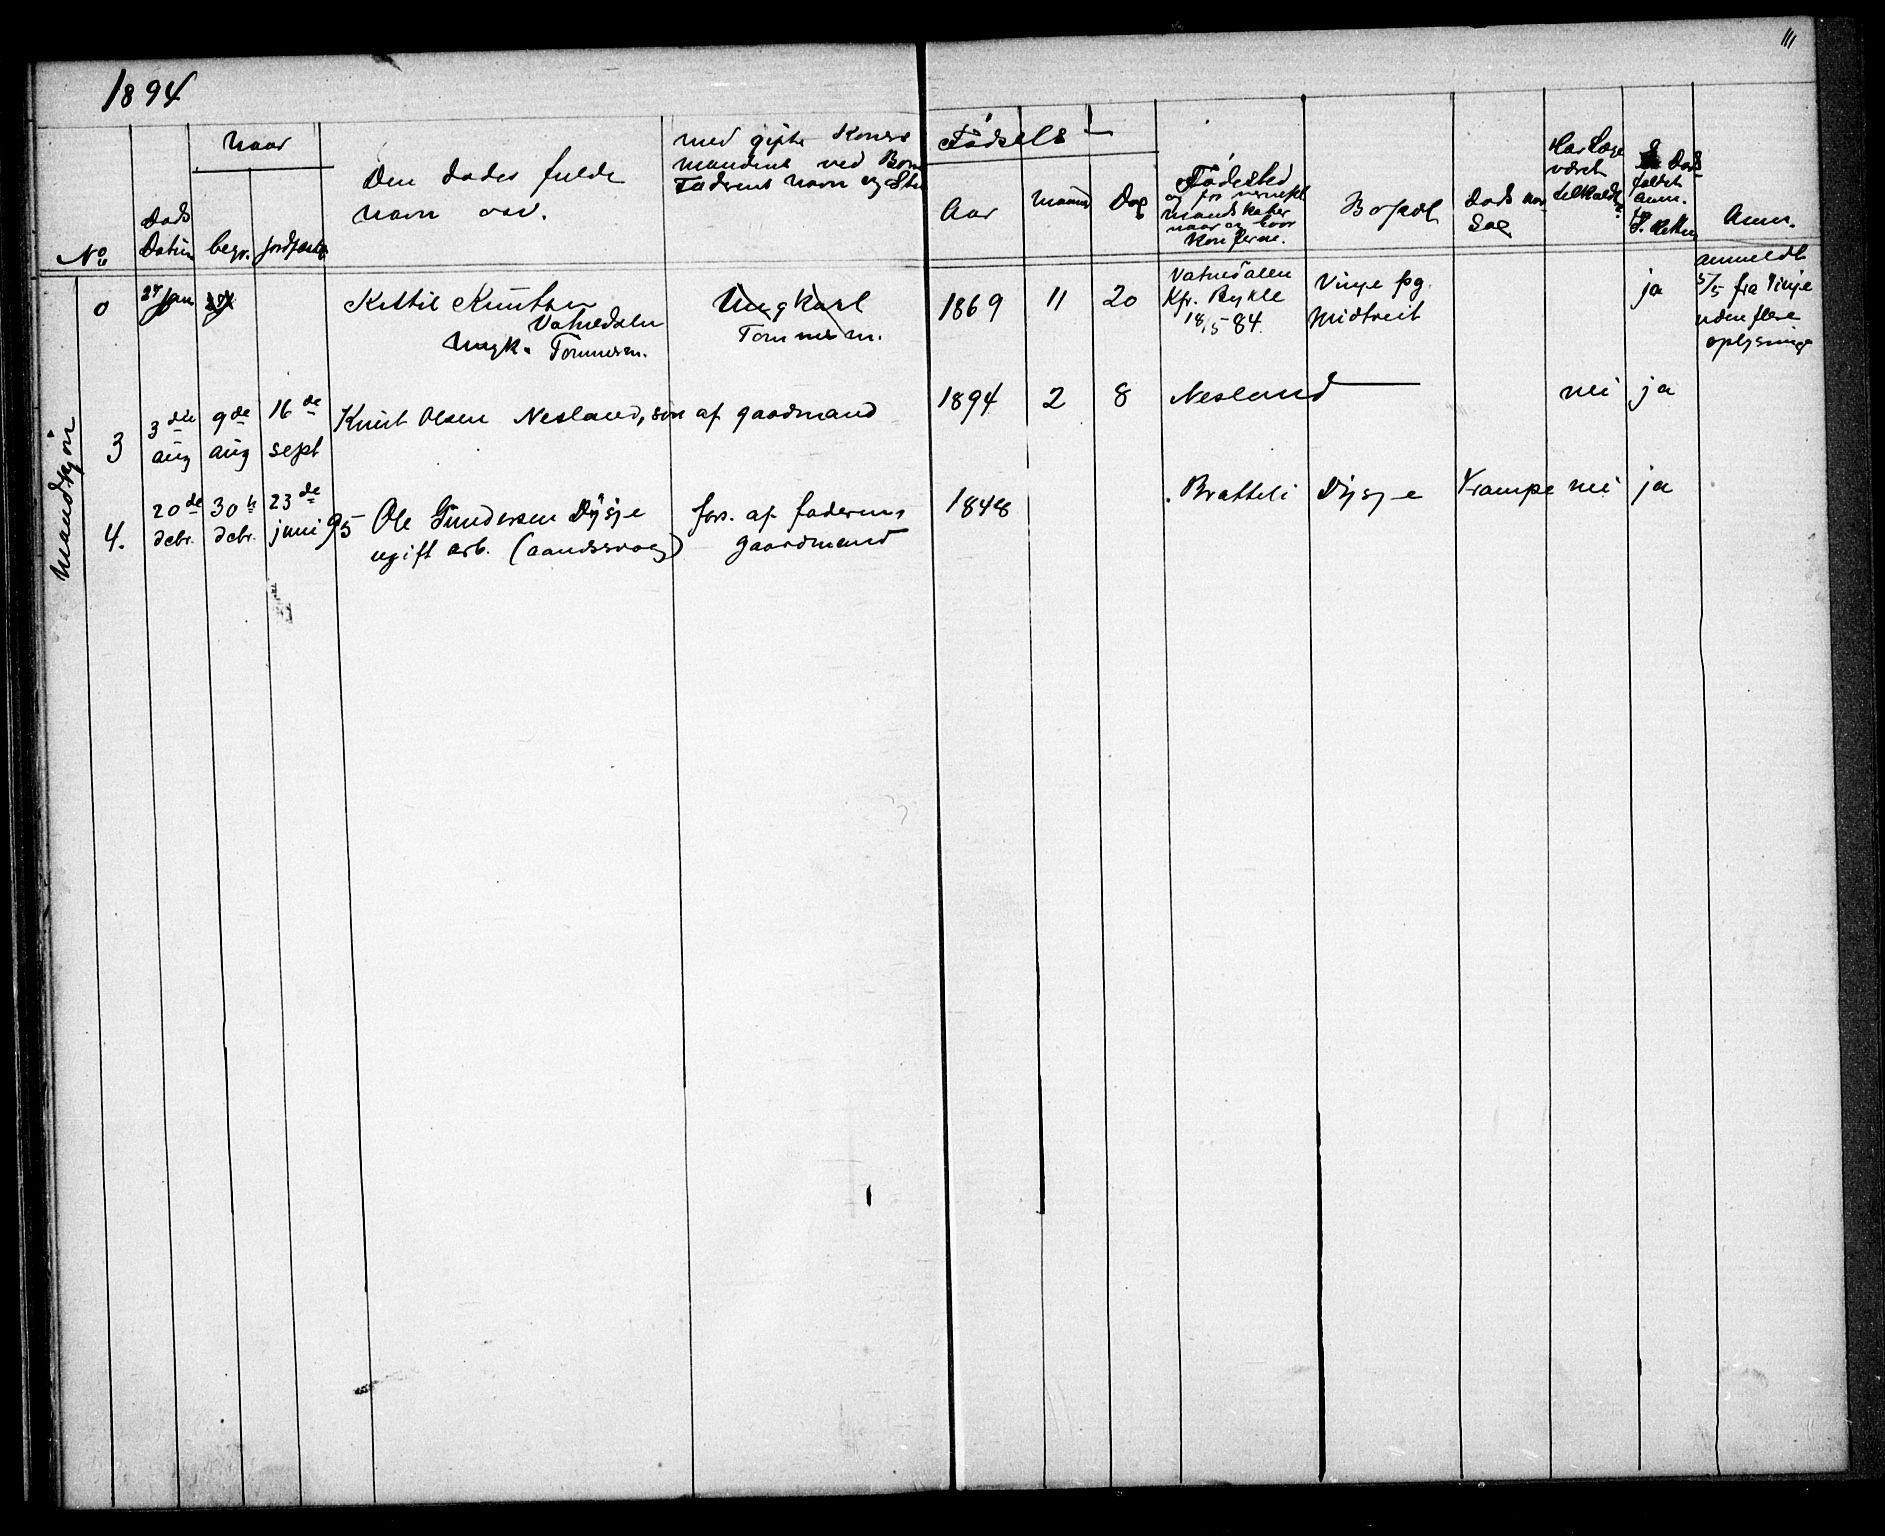 1894
111
No
Døds
Datum
Naar
begr.
jordfæstet
Den dødes fulde
navn osv.
med gifte Koners
mandens ved Børn
Faderens navn og St
Fødsels
Aar
Maaned
Dag
Fødested
og for vernepl.
mandskaber
naar og hvor
konferm.
Bopæl
Døds aar
sag
Har Læge
været
tilkaldt
Døds
faldet
anm.
Anm.
Mandkjøn
0
24 jan
Kettil Knutsen
Vatnedalen
Ungk. Tømmerm.
Ungkarl
Tømmerm.
1869
11
20
Vatnedalen
Kfr. Bykle
18/5 84.
Vinje pg.
Midtveit
ja
anmeldt
5/5 fra Vinje
uden flere
oplysninge
3
3 die
aug
9 de
aug
16 de
sept
Knut Olsen Nesland, søn af gaardmand
1894
2
8
Nesland
nei
ja
4.
20 de
decbr.
30 te
decbr.
23 de
juni 95
Ole Gundersen Dysje
ugift arb. (aandssvag)
fors. af faderens
gaardmand
1848
Bratteli
Dysje
Krampe
nei
ja